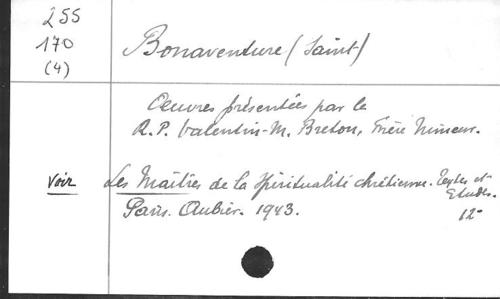 255
170
(4)
Bonaventure (Saint)
Oeuvres présentées par le
R.P. Valentin-M. Breton, Frère Mineur.
Voir Les Maîtres de la spiritualité chrétienne. Textes et
Etudes.
Paris. Aubier. 1943. 12°